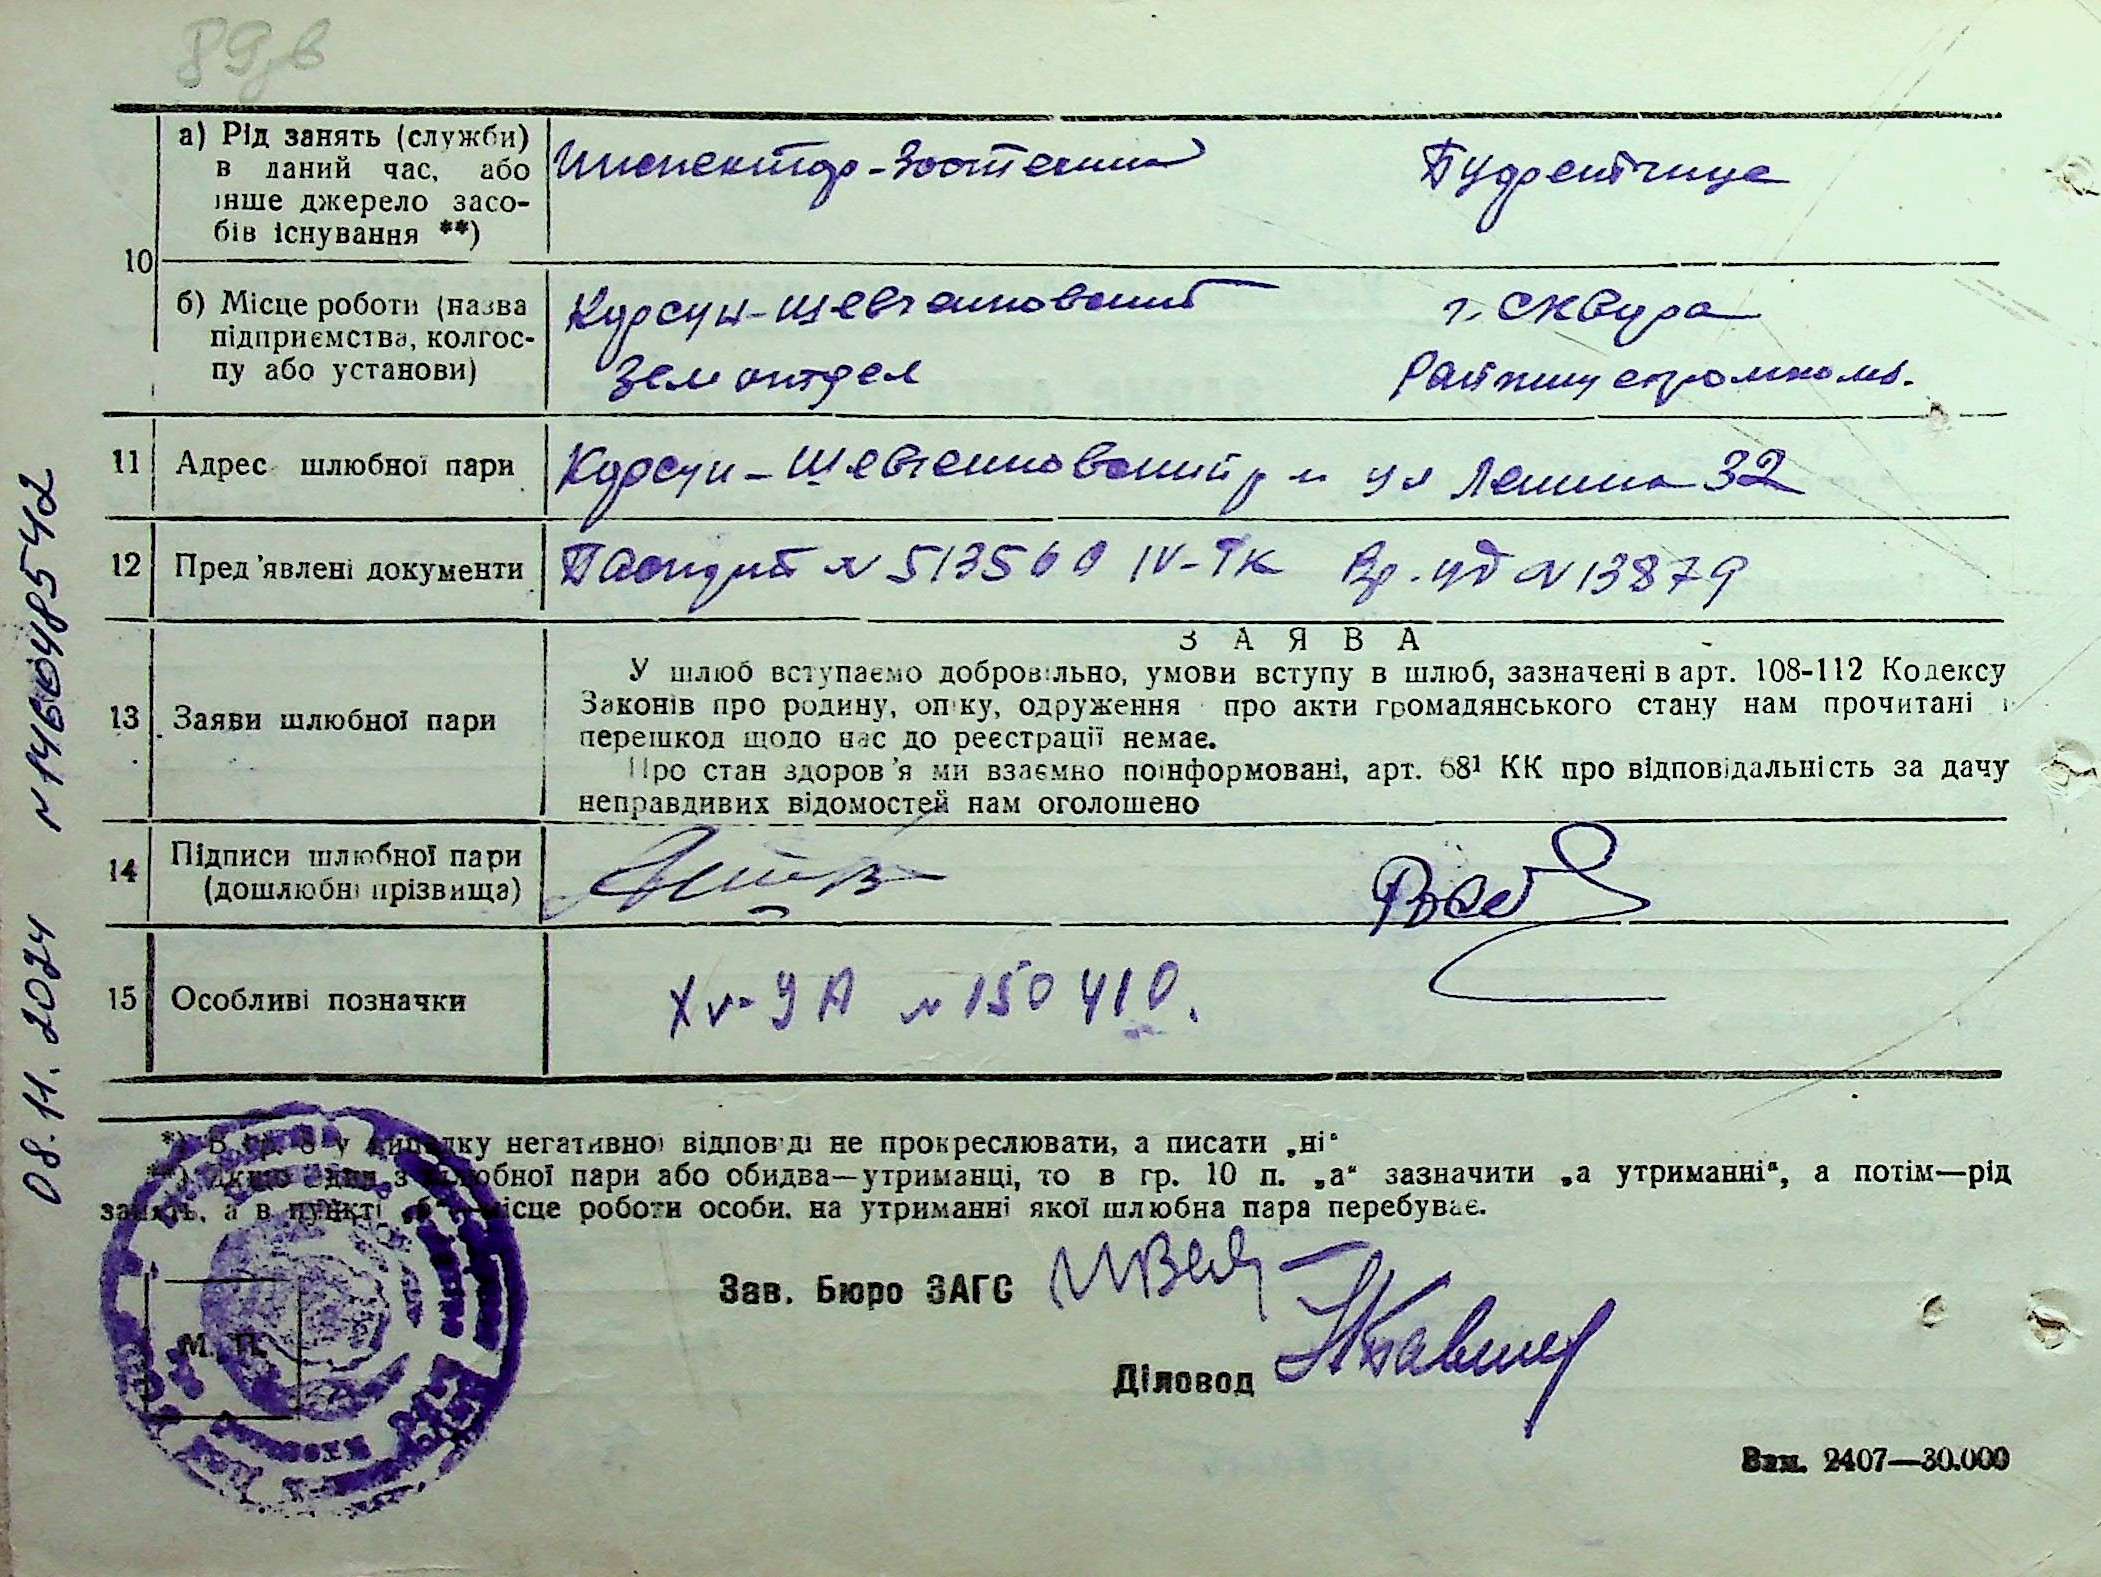 10
а) Рід занять (служби)
в даний час, або
інше джерело засо-
бів існування **)
Инспектор-Зоотехник
Буфетчица
б) Місце роботи (назва
підприємства, колгос-
пу або установи)
Курсун-Шевченковский
Земотдел
г. Сквира
11
Адрес шлюбної пари
Курсун-Шевченковский ул Ленина 32
12
Пред'явлені документи
Паспорт N 513560 IV-ТК Вр. уд N 13879
13
Заяви шлюбної пари
ЗАЯВА
У шлюб вступаємо добровільно, умови вступу в шлюб, зазначені в арт. 108-112 Кодексу
Законів про родину, опіку, одруження про акти громадянського стану нам прочитані і
перешкод щодо нас до реєстрації немає.
Про стан здоров'я ми взаємно поінформовані, арт. 68¹ КК про відповідальність за дачу
неправдивих відомостей нам оголошено
14
Підписи шлюбної пари
(дошлюбні прізвища)
15
Особливі позначки
N 150410.
*) В гр. 8 у випадку негативної відповіді не прокреслювати, а писати „ні“
**) Якщо один з шлюбної пари або обидва—утриманці, то в гр. 10 п. „а“ зазначити „а утриманні“, а потім—рід
занять, а в пункті „б“—місце роботи особи, на утриманні якої шлюбна пара перебуває.
Зав. Бюро ЗАГС
Діловод
М. П.
Зам. 2407—30.000
08.11.2024 N 14600485542